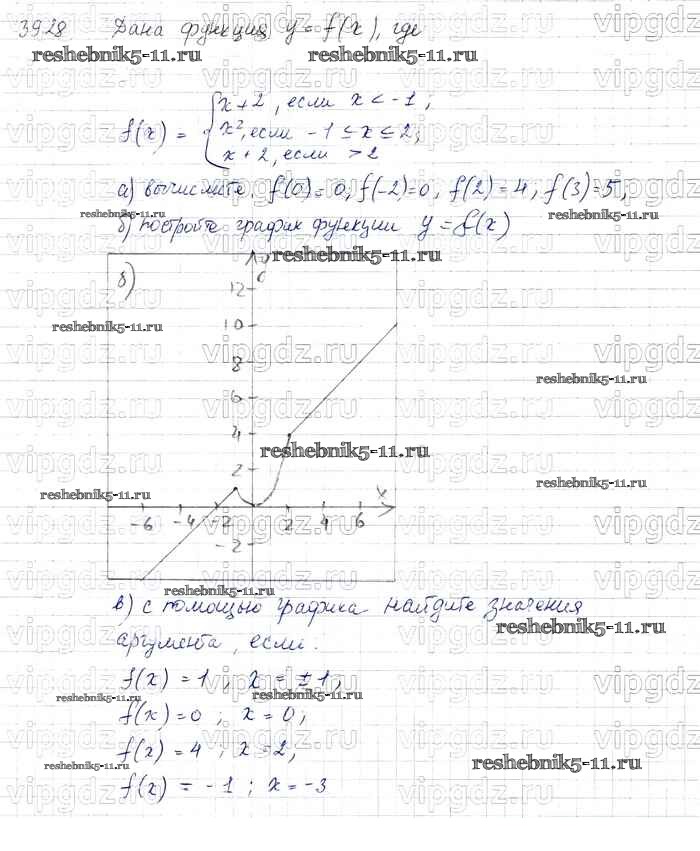 3928 Дана функция y = f(x), где
reshebnik5-11.ru reshebnik5-11.ru
f(x) = { x+2, если x < -1;
x², если -1 ≤ x ≤ 2;
x + 2, если > 2
а) вычислите: f(0) = 0, f(-2)=0, f(2) = 4, f(3)=5,
reshebnik5-11.ru reshebnik5-11.ru
б) постройте график функции y = f(x)
reshebnik5-11.ru
б)
y
12
reshebnik5-11.ru
10
8
reshebnik5-11.ru
6
4
reshebnik5-11.ru
2
reshebnik5-11.ru
reshebnik5-11.ru
x
-6 -4 -2 2 4 6
-2
reshebnik5-11.ru
в) с помощью графика найдите значения
reshebnik5-11.ru
аргумента, если:
f(x) = 1 ; x = ±1;
reshebnik5-11.ru reshebnik5-11.ru
f(x) = 0 ; x = 0;
f(x) = 4 ; x = 2,
reshebnik5-11.ru reshebnik5-11.ru
f(x) = -1 ; x = -3
vipgdz.ru